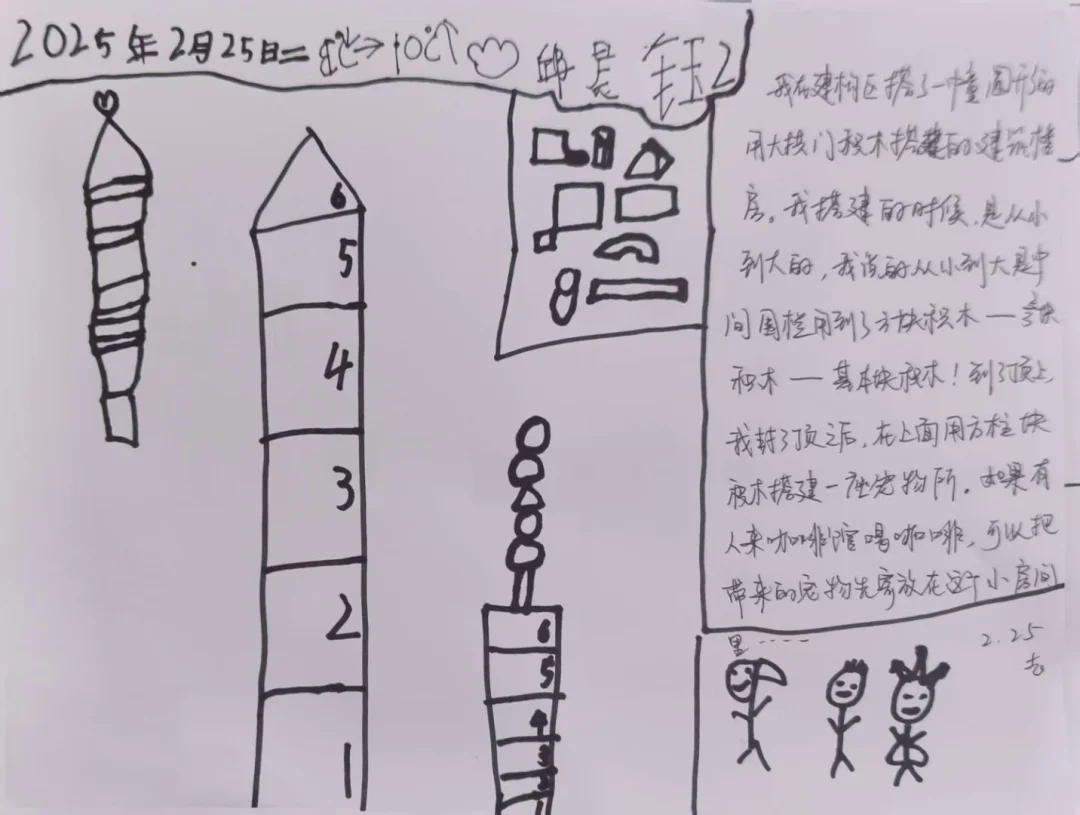 2025年2月25日二 8℃→10℃ 钰2
我在建构区搭了一幢圆形的
用大拱门积木搭建的建筑楼
房。我搭建的时候,是从小
到大的,我说的从小到大是中
间围栏用到了方块积木一
积木一基本块积木!到了顶上
我封了顶之后,在上面用方柱块
积木搭建一座宠物所。如果有
人来咖啡馆喝咖啡,可以把
带来的宠物先寄放在这个小房间
里……
2.25
6
5
4
3
2
1
6
5
4
3
2
1